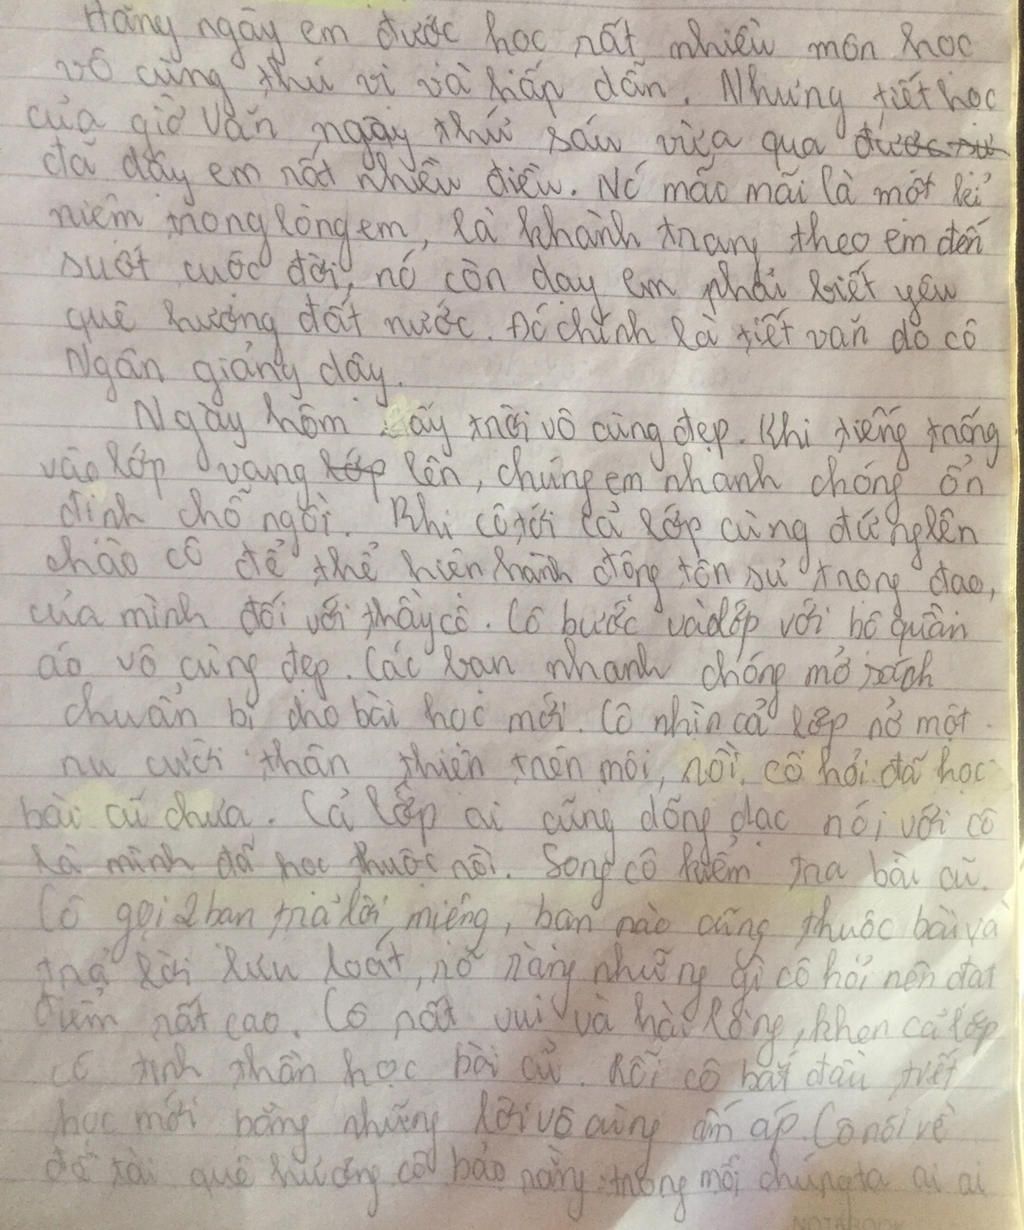 Hằng ngày em được học rất nhiều môn học
vô cùng thú vị và hấp dẫn. Nhưng tiết học
của giờ Văn ngày thứ sáu vừa qua
đã dậy em rất nhiều điều. Nó mão mãi là một kỉ
niêm trong lòng em, là khành trang theo em đến
suốt cuộc đời, nó còn dạy em phải biết yêu
quê hương đất nước. Đó chính là tiết văn do cô
Ngân giảng dậy.
Ngày hôm ấy trời vô cùng đẹp. Khi tiếng trống
vào lớp vang lớp lên, chúng em nhanh chóng ổn
định chỗ ngồi. Khi cô tới cả lớp cùng đứng lên
chào cô để thể hiên hành động tôn sư trọng đạo,
của mình đối với thầy cô. Cô bước vào lớp với bộ quần
áo vô cùng đẹp. Các bạn nhanh chóng mở sách
chuẩn bị cho bài học mới. Cô nhìn cả lớp nở một
nu cười thân thiện trên môi, rồi, cô hỏi đã học
bài cũ chưa. Cả lớp ai cũng dõng dạc nói với cô
là mình đã học thuộc rồi. Song cô kiểm tra bài cũ.
Cô gọi 2 bạn trả lời miệng, bạn nào cũng thuộc bài và
trả lời lưu loát, rõ ràng những gì cô hỏi nên đạt
điểm rất cao. Cô rất vui và hài lòng, khen cả lớp
có tinh thần học bài cũ. Rồi cô bắt đầu tiết
học mới bằng những lời vô cùng ấm áp. Cô nói về
đề tài quê hương, cô bảo rằng: trong mỗi chúng ta ai ai